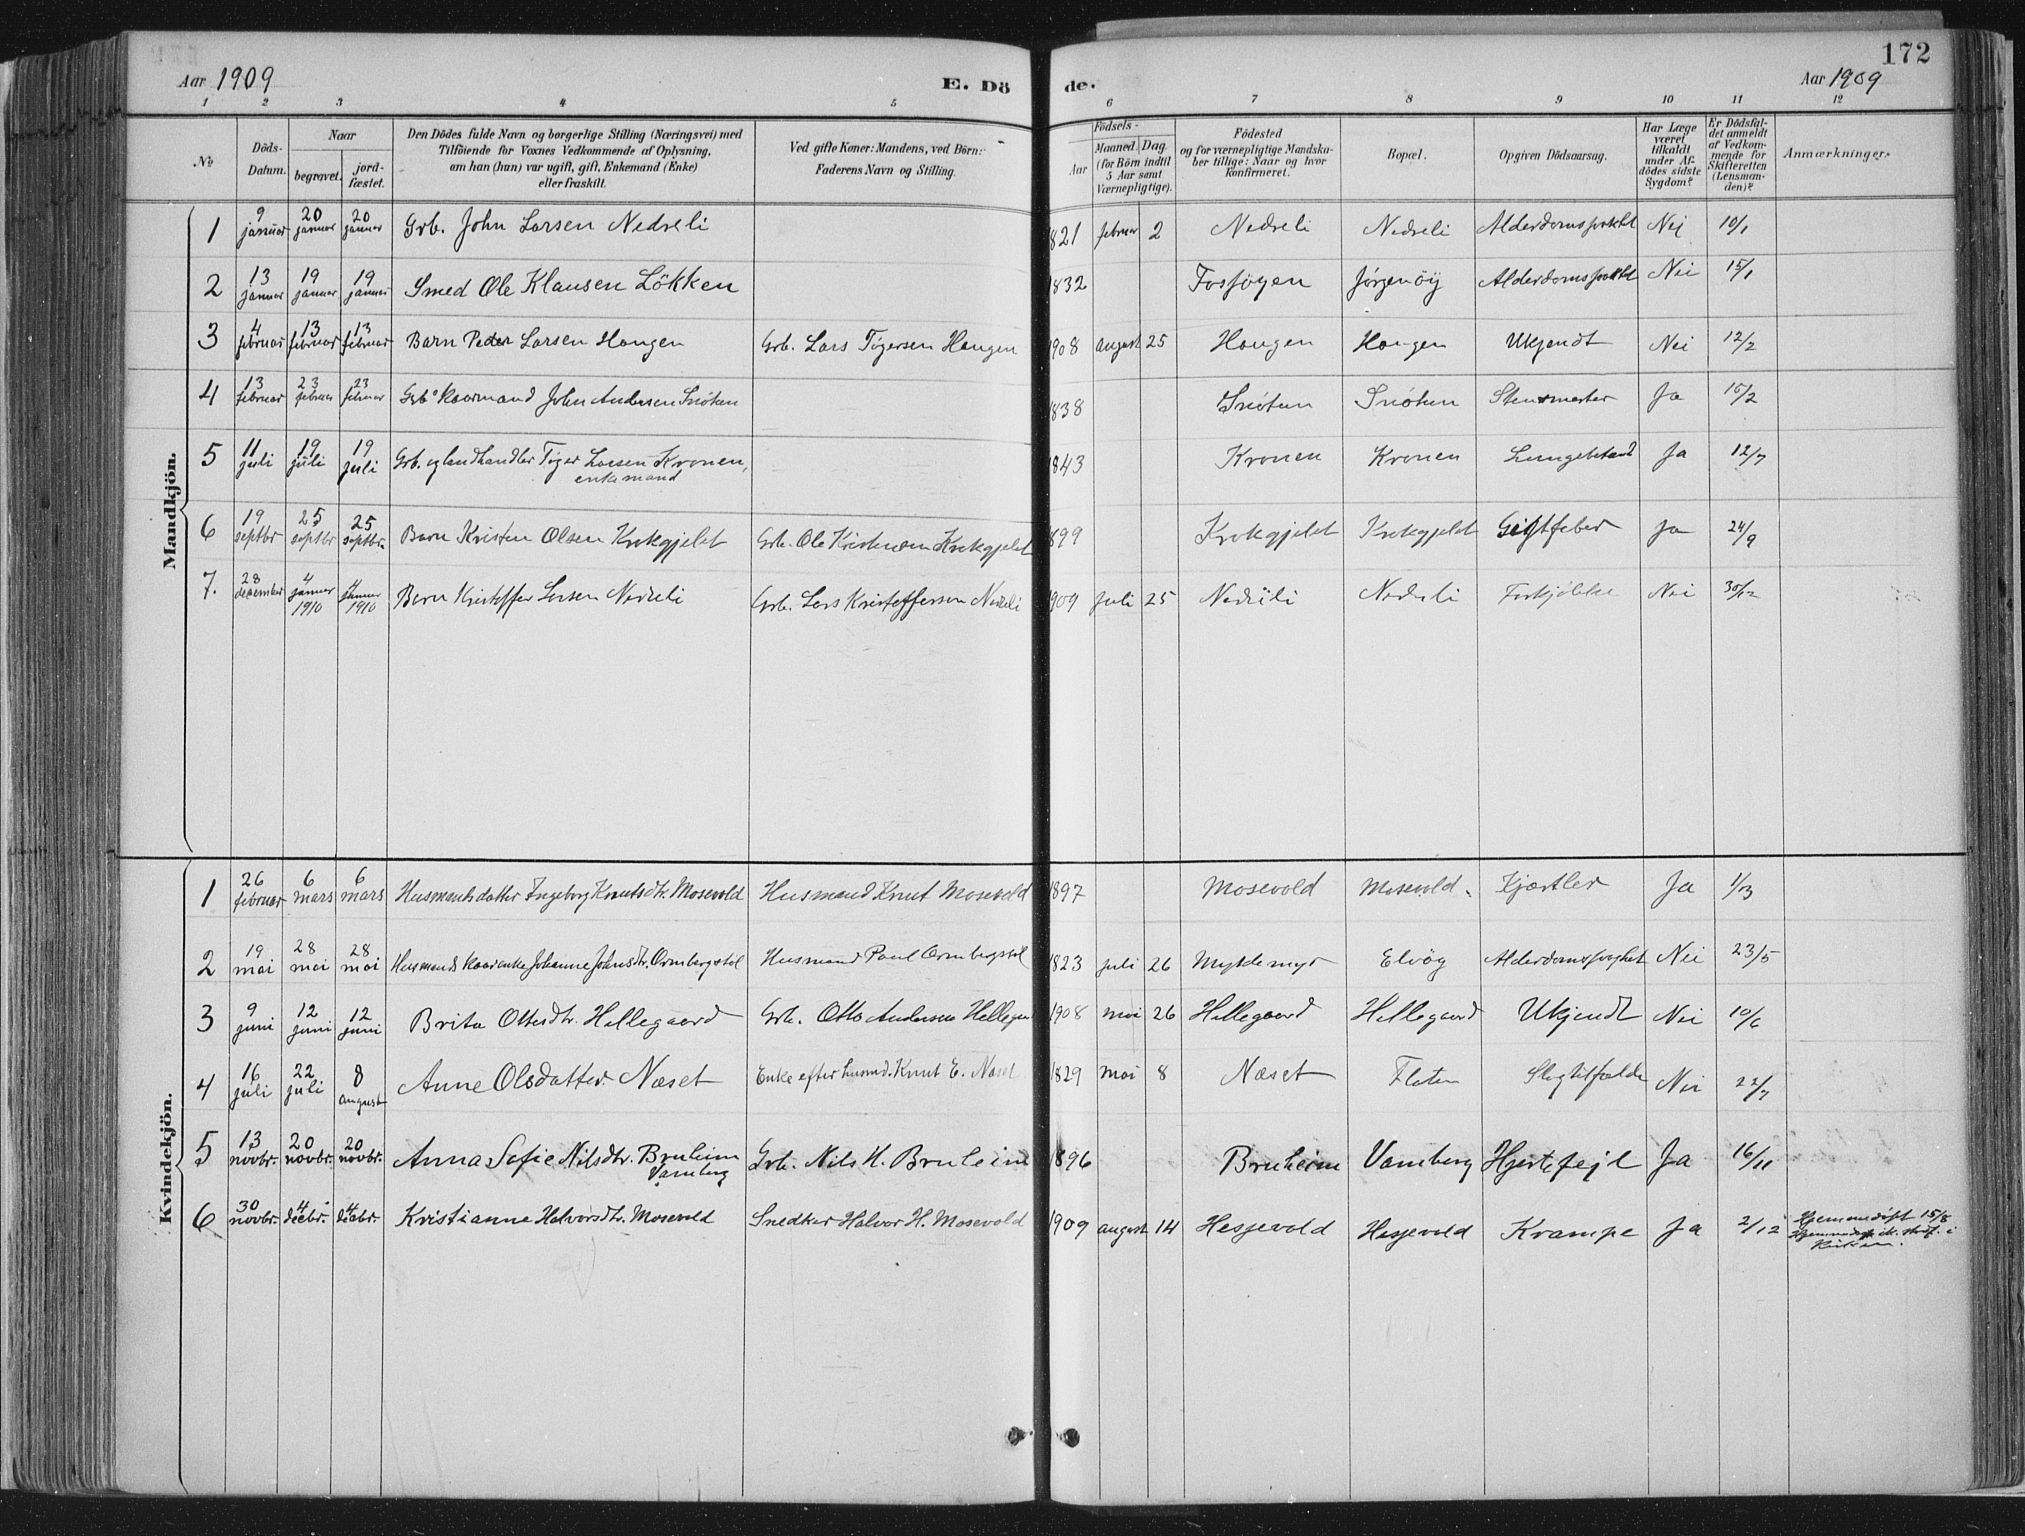 172
Aar 1909
E. Dö
de.
Aar 1909
1 2 3 4 5 6 7 8 9 10 11 12
No
Döds-Datum.
Naar
begravet.
jord-fæstet.
Den Dödes fulde Navn og borgerlige Stilling (Næringsvei) med
Tilföiende for Voxnes Vedkommende af Oplysning,
om han (hun) var ugift, gift, Enkemand (Enke)
eller fraskilt.
Ved gifte Koner: Mandens, ved Börn:
Faderens Navn og Stilling.
Födsels-
Aar
Maaned. Dag.
(for Börn indtil
5 Aar samt
Værnepligtige).
Födested
og for værnepligtige Mandska-
ber tillige: Naar og hvor
konfirmeret.
Bopæl.
Opgiven Dödsaarsag.
Har Læge
været
tilkaldt
under Af-
dödes sidste
Sygdom?
Er Dödsfal-
det anmeldt
af Vedkom-
mende for
Skifteretten
(Lensman-
den)?
Anmærkninger.
Mandkjön.
1 9 januar 20 januar 20 januar Grb. John Larsen Nedreli 1821 februar 2 Nedreli Nedreli Nei 10/1
2 13 januar 19 januar 19 januar Smed Ole Klausen Lökken 1832 Jörgenöy Nei 15/1
3 4 februar 13 februar 13 februar Barn Peder Larsen Haugen Grb. Lars Tögersen Haugen 1908 august 25 Haugen Haugen Ukjendt Nei 12/2
4 13 februar 23 februar 23 februar John Andersen Snöten 1838 Ja 15/2
5 11 juli 19 juli 19 juli Grb. og landhandler Töger Larsen Kronen,
enkemand 1843 Kronen Kronen Ja 12/7
6 19 septbr 25 septbr 25 septbr. Barn Kristen Olsen Krokgjelet Grb. Ole Kristensen Krokgjelet 1899 Krokgjelet Krokgjelet Giftfeber Ja 24/9
7. 28 december 4 januar 1910 4 januar 1910 Barn Kristoffer Larsen Nedreli Grb. Lars Kristoffersen Nedreli 1909 juli 25 Nedreli Nedreli Forkjölelse Nei 30/12
Kvindekjön.
1 26 februar 6 mars 6 mars Husmandsdatter Ingeborg Knutsdtr. Mosevold Husmand Knut Mosevold 1897 Mosevold Mosevold. Kjertler Ja 1/3
2 19 mai 28 mai 28 mai Husmands kaarenke Johanne Johnsdtr. Ormbergstöl Husmand Paul Ormbergstöl 1823 juli 26 Myldemyr Elvöy Nei 23/5
3 9 juni 12 juni 12 juni Brita Ottesdtr. Hellegaard Grb. Otto Andersen 1908 mai 26 Hellegaard Hellegaard Ukjendt Nei 10/6
4 16 juli 22 juli 8 august Anne Olsdatter Næset Enke efter husmd. Knut E. Næset 1829 mai 8 Næset Fleten Nei 22/7
5 13 novbr. 20 novbr. 20 novbr. Anna Sofie Nilsdtr. Bruheim
Vamberg Grb. Nils H. Bruheim 1896 Bruheim Vamberg Hjertefejl Ja 16/11
6 30 novbr. 4 decbr. 4 decbr. Kristianne Halvorsdtr. Mosevold Snedker Halvor H. Mosevold 1909 august 14 Hesjevold Hesjevold Krampe Ja 2/12 Hjemmedöpt 15/8